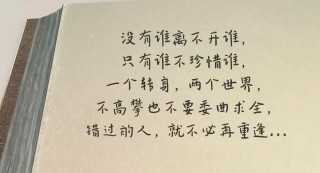 没有谁离不开谁，
只有谁不珍惜谁，
一个转身，两个世界，
不高攀也不要委曲求全，
错过的人，就不必再重逢...